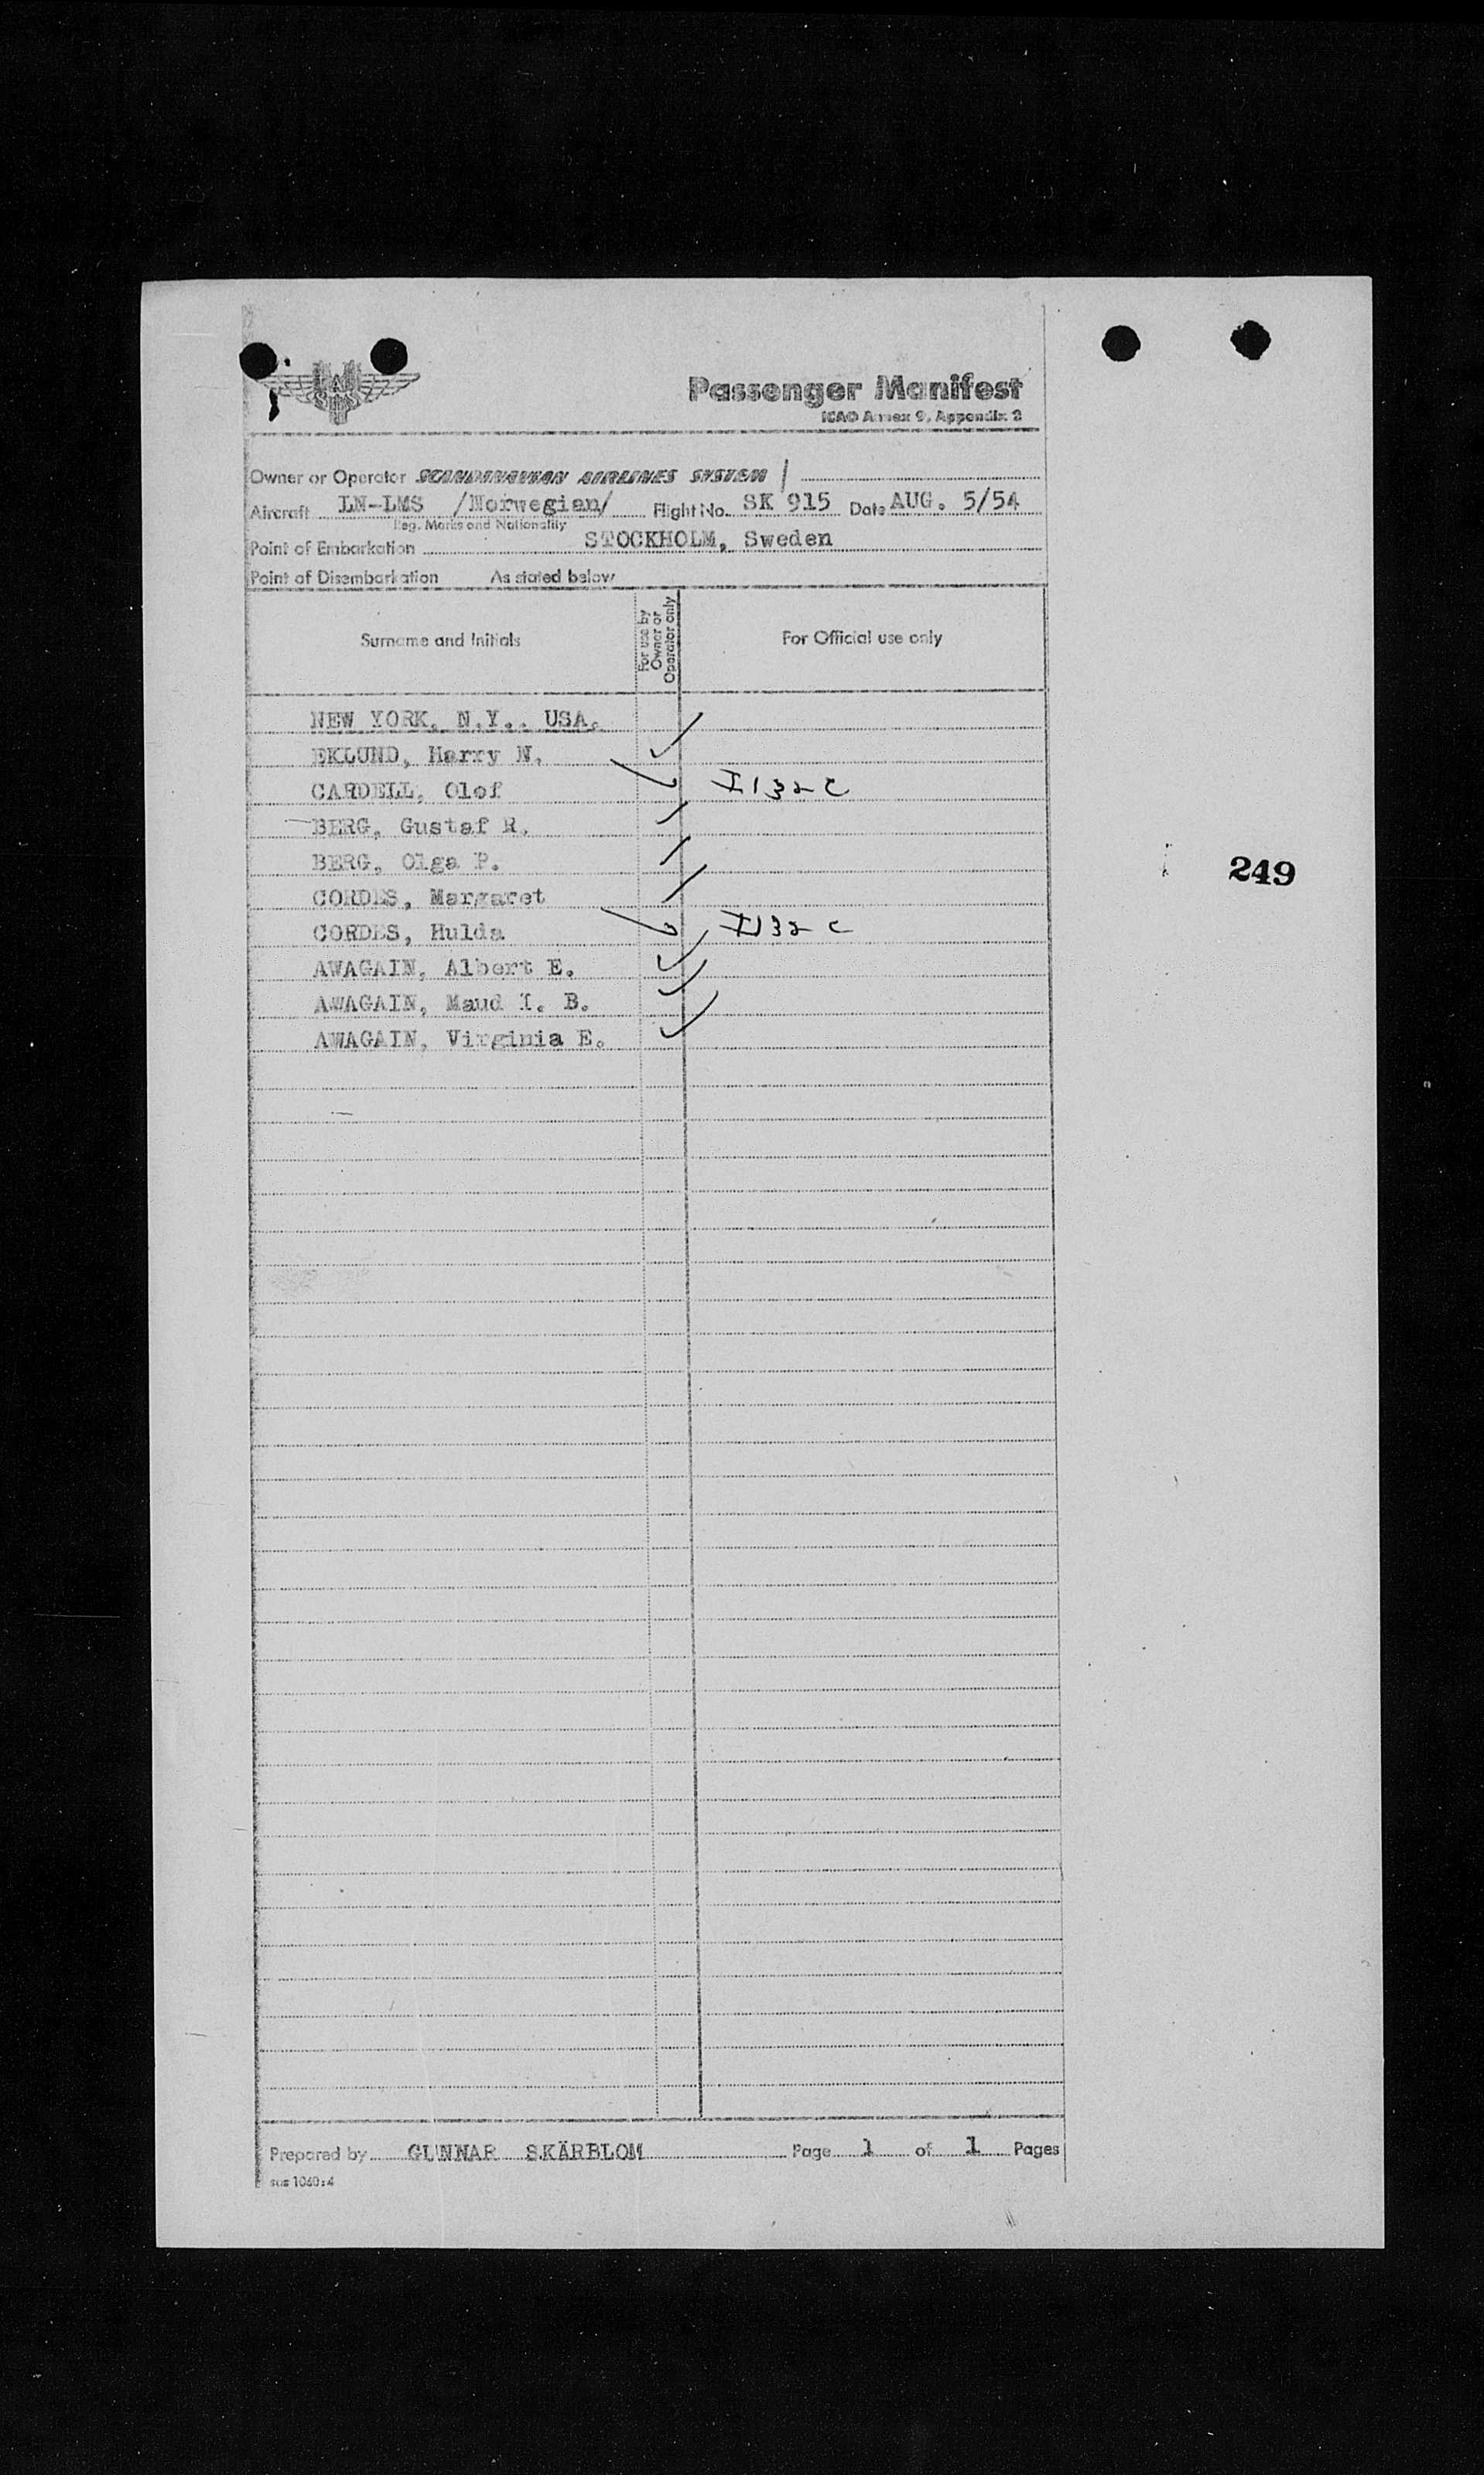 SAS
Passenger Manifest
ICAO Annex 9, Appendix 2
Owner or Operator SCANDINAVIAN AIRLINES SYSTEM /
Aircraft LN-LMS /Norwegian/ Flight No. SK 915 Date AUG. 5/54
Reg. Marks and Nationality
Point of Embarkation STOCKHOLM, Sweden
Point of Disembarkation As stated below
Surname and Initials
For use by
Owner or
Operator only
For Official use only
NEW YORK, N.Y., USA.
EKLUND, Harry N.
CARDELL, Olof I 132 C
BERG, Gustaf R.
BERG, Olga P.
249
CORDES, Margaret
CORDES, Hulda I 132 C
AWAGAIN, Albert E.
AWAGAIN, Maud I. B.
AWAGAIN, Virginia E.
Prepared by GUNNAR SKÄRBLOM Page 1 of 1 Pages
sas 1060:4